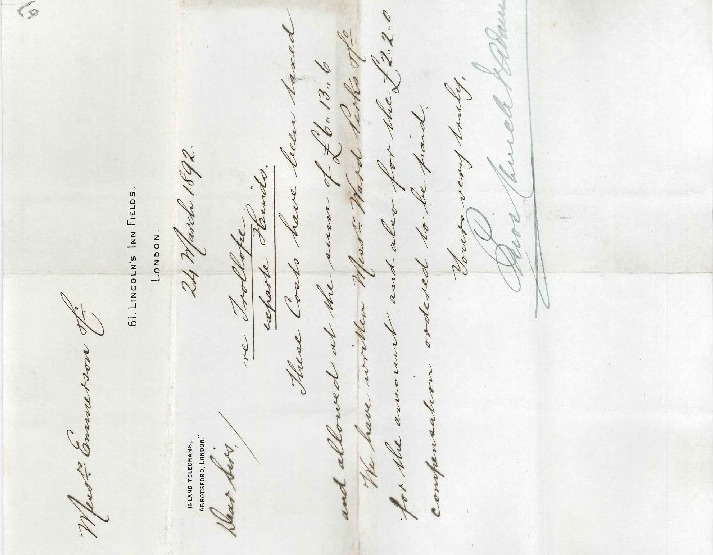 61, LINCOLN'S INN FIELDS.
LONDON.
INLAND TELEGRAMS,
"ABBOTSFORD, LONDON."
24 March 1892.
Dear Sirs,
re Trollope
exparte Hinds.
These Costs have been taxed
and allowed at the sum of £6. 13. 6
We have written Messrs Ward Perks &c
for the amount and also for the £2. 2. 0
compensation ordered to be paid.
Yours very truly,
Messrs Emmerson &c